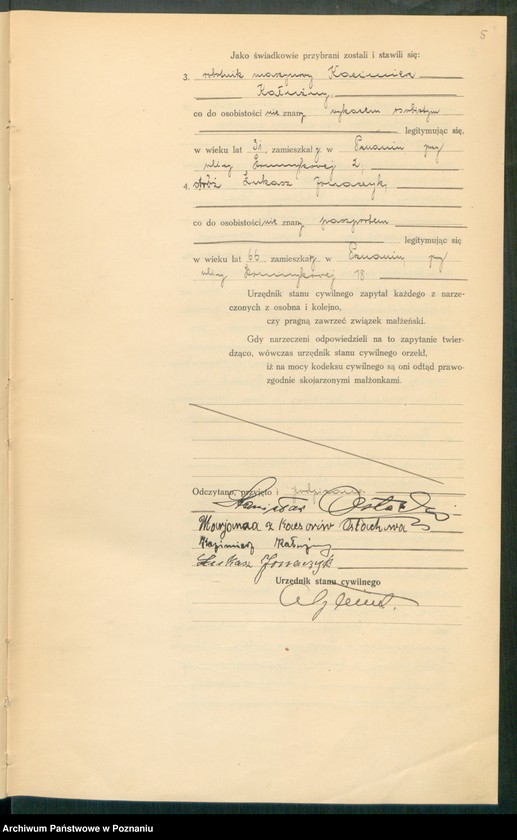 5
Jako świadkowie przybrani zostali i stawili się:
3. robotnik maszynowy Kazimierz
Kałużny,
co do osobistości nie znany wykazem osobistym
legitymując się,
w wieku lat 31, zamieszkały w Poznaniu przy
ulicy 2,
4. stróż Łukasz
co do osobistości nie znany paszportem
legitymując się
w wieku lat 66, zamieszkały w Poznaniu, przy
ulicy 18.
Urzędnik stanu cywilnego zapytał każdego z narze-
czonych z osobna i kolejno,
czy pragną zawrzeć związek małżeński.
Gdy narzeczeni odpowiedzieli na to zapytanie twier-
dząco, wówczas urzędnik stanu cywilnego orzekł,
iż na mocy kodeksu cywilnego są oni odtąd prawo-
zgodnie skojarzonymi małżonkami.
Odczytano, przyjęto i podpisano.
Stanisław
Marjanna z
Kazimierz Kałużny
Łukasz
Urzędnik stanu cywilnego
Archiwum Państwowe w Poznaniu